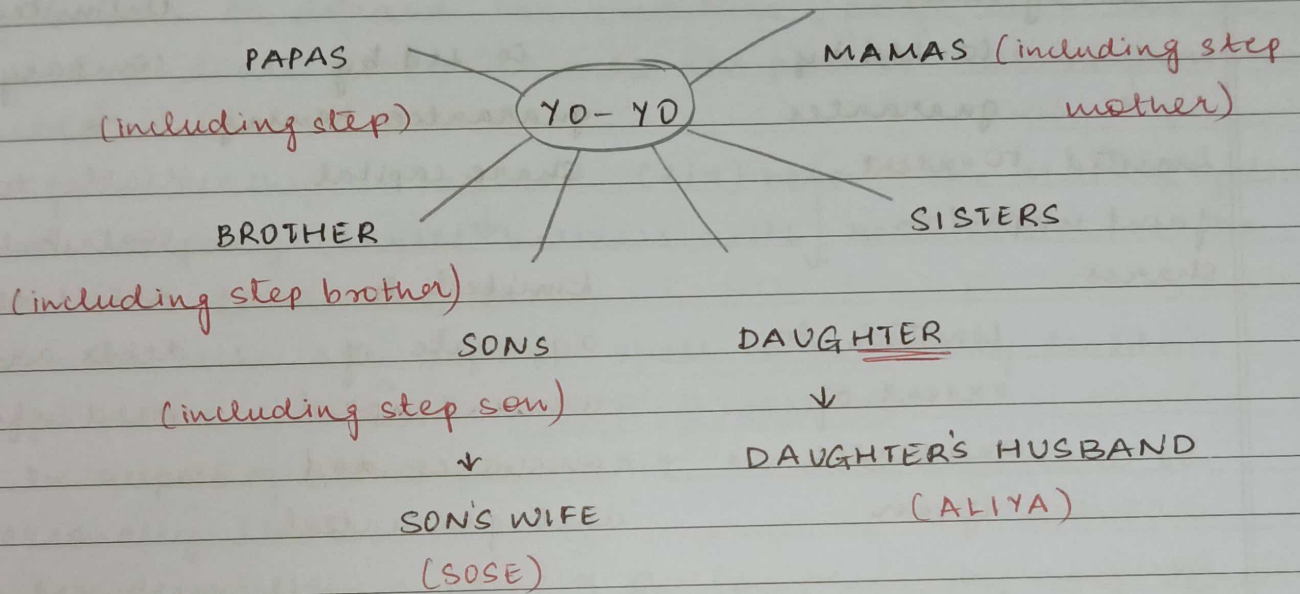 PAPAS
(including step)
YO-YO
MAMAS (including step
mother)
BROTHER
(including step brother)
SISTERS
SONS
(including step son)
↓
SON'S WIFE
(SOSE)
DAUGHTER
↓
DAUGHTER'S HUSBAND
(ALIYA)